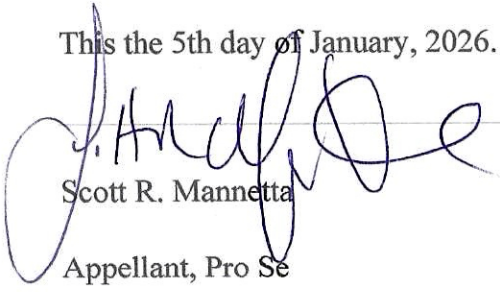 This the 5th day of January, 2026.
Scott R. Mannetta
Appellant, Pro Se